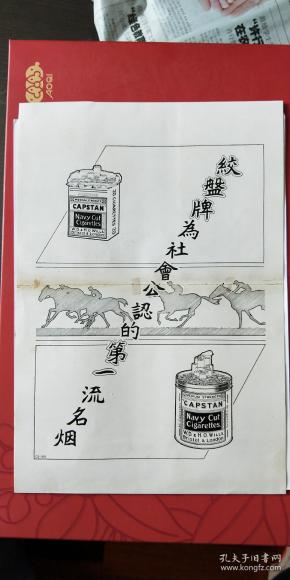 AOQI
絞盤牌為社會公認的第一流名烟
CAPSTAN
Navy Cut
Cigarettes
W.D. & H.O. WILLS
CAPSTAN
Navy Cut
Cigarettes
W.D. & H.O. WILLS
Bristol & London
孔夫子旧书网
www.kongfz.com